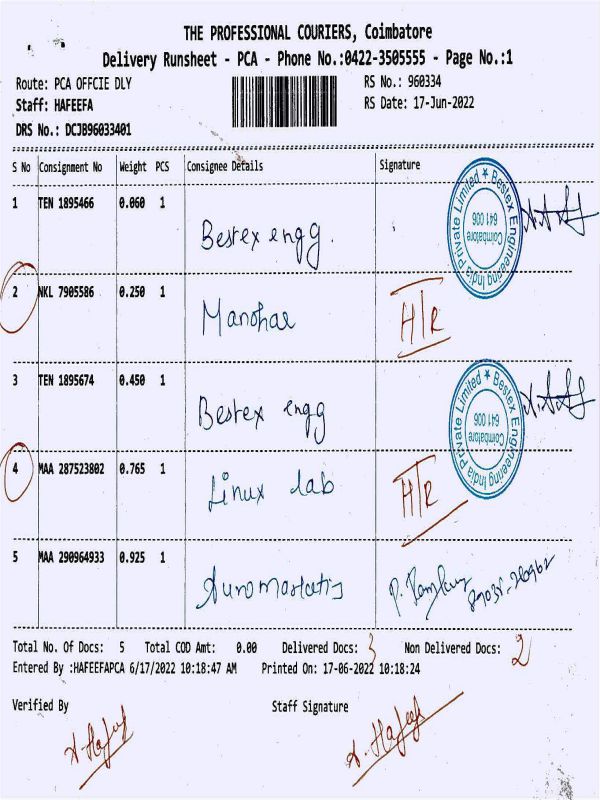 THE PROFESSIONAL COURIERS, Coimbatore
Delivery Runsheet - PCA - Phone No.:0422-3505555 - Page No.:1
Route: PCA OFFCIE DLY RS No.: 960334
Staff: HAFEEFA RS Date: 17-Jun-2022
DRS No.: DCJB96033401
S No Consignment No Weight PCS Consignee Details Signature
1 TEN 1895466 0.060 1 Bestex engg.
Bestex Engineering India Private Limited ★
Coimbatore
641 006
2 NKL 7905586 0.250 1 Manohar H/R
3 TEN 1895674 0.450 1 Bestex engg
Bestex Engineering India Private Limited ★
Coimbatore
641 006
4 MAA 287523802 0.765 1 Linux lab H/R
5 MAA 290964933 0.925 1
Total No. Of Docs: 5 Total COD Amt: 0.00 Delivered Docs: 3 Non Delivered Docs: 2
Entered By :HAFEEFAPCA 6/17/2022 10:18:47 AM Printed On: 17-06-2022 10:18:24
Verified By Staff Signature